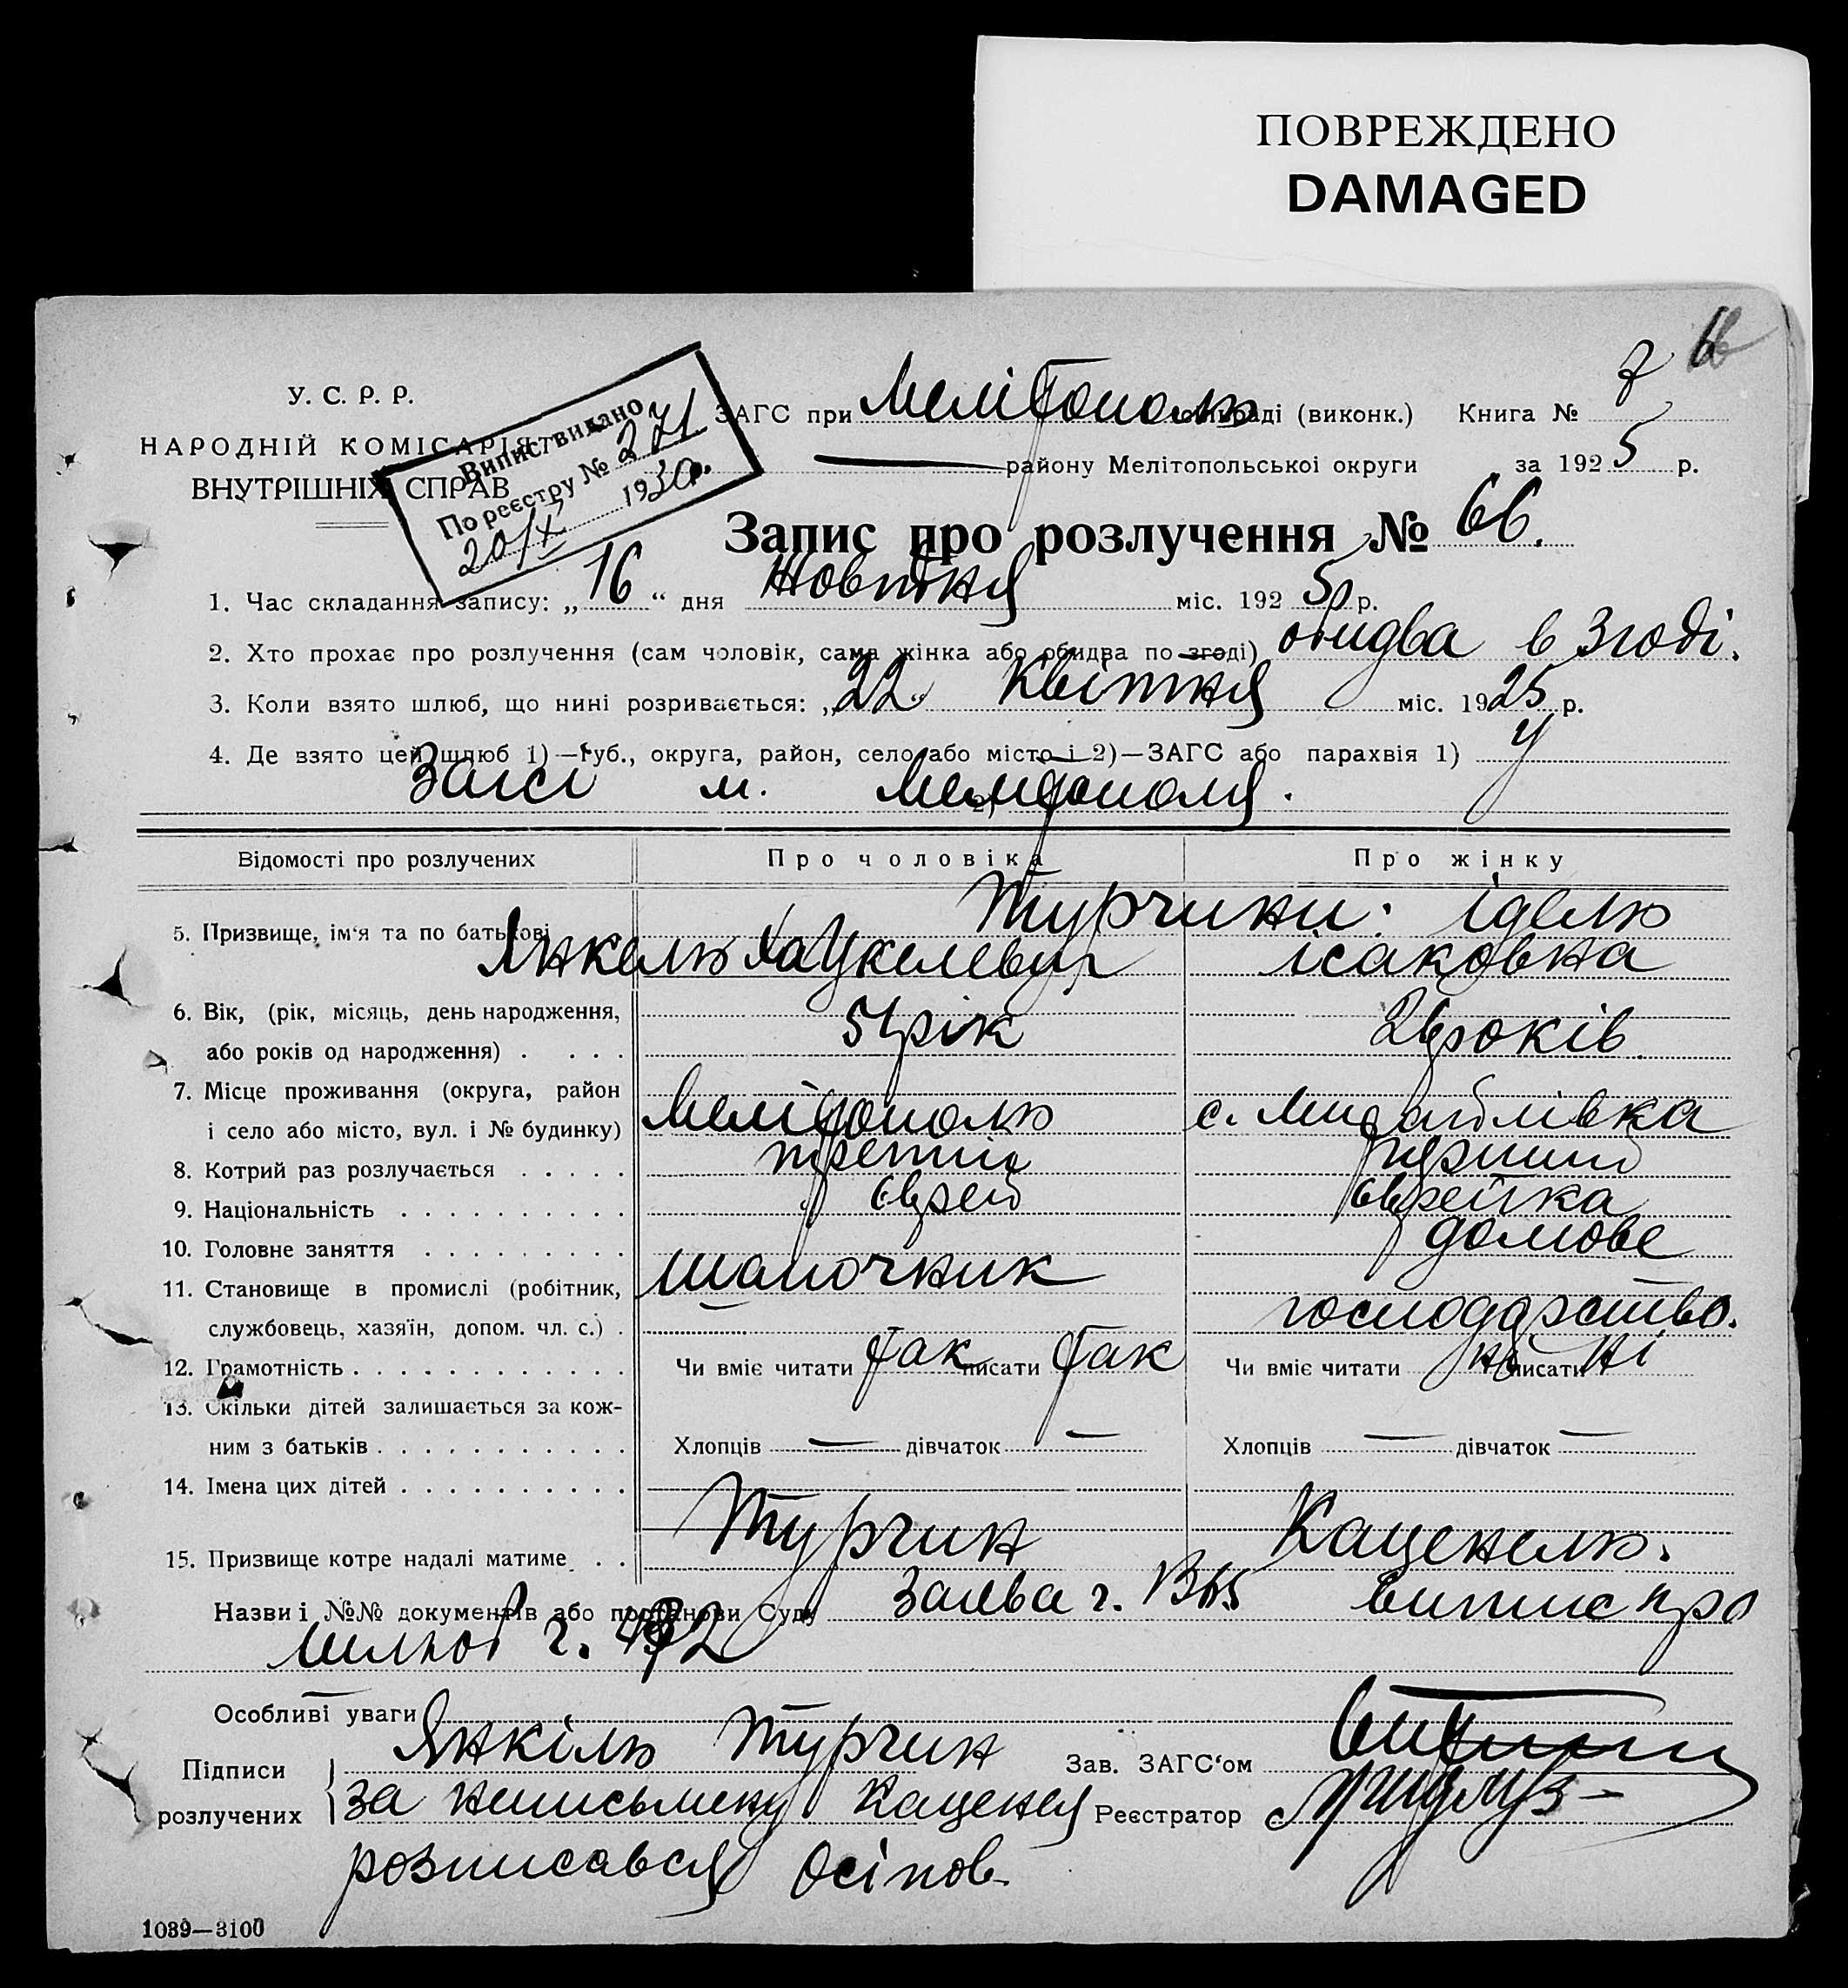 ПОВРЕЖДЕНО
DAMAGED
66
У. С. Р. Р.
НАРОДНІЙ КОМІСАРІЯТ
ВНУТРІШНІХ СПРАВ
Випис видано
По реєстру № 271
20/X 1930р.
ЗАГС при Мелітополь міськраді (виконк.) Книга №
району Мелітопольської округи за 1925 р.
Запис про розлучення № 66.
1. Час складання запису: „16“ дня Жовтня міс. 1925 р.
2. Хто прохає про розлучення (сам чоловік, сама жінка або обидва по згоді) обидва в згоді.
3. Коли взято шлюб, що нині розривається: „22“ Квітня міс. 1925 р.
4. Де взято цей шлюб 1)—губ., округа, район, село або місто і 2)—ЗАГС або парахвія 1) У
Загсі м. Мелітополя.
Відомості про розлучених Про чоловіка Про жінку
5. Призвище, ім'я та по батькові Турчини: Ідель
Янкель Хацкелевич Ісаковна
6. Вік, (рік, місяць, день народження,
або років од народження) . . . . 51 рік 26 років
7. Місце проживання (округа, район
і село або місто, вул. і № будинку) Мелітополь с. Михайлівка
8. Котрий раз розлучається . . . . . третій перший
9. Національність . . . . . . . . . . єврей єврейка
10. Головне заняття . . . . . . . . . шапочник домове
11. Становище в промислі (робітник,
службовець, хазяїн, допом. чл. с.) . господарство.
12. Грамотність . . . . . . . . . . . . Чи вміє читати так писати так Чи вміє читати ні писати ні
13. Скільки дітей залишається за кож-
ним з батьків . . . . . . . . . . . Хлопців — дівчаток — Хлопців — дівчаток —
14. Імена цих дітей . . . . . . . . . .
15. Призвище котре надалі матиме . . Турчин Каценель.
Назви і №№ документів або постанови Суду Заява ч. Випис про
шлюб ч.
Особливі уваги
Підписи
розлучених
Янкіль Турчин Зав. ЗАГС'ом
за неписьмену Каценел Реєстратор
розписався Осіпов
1039—3100